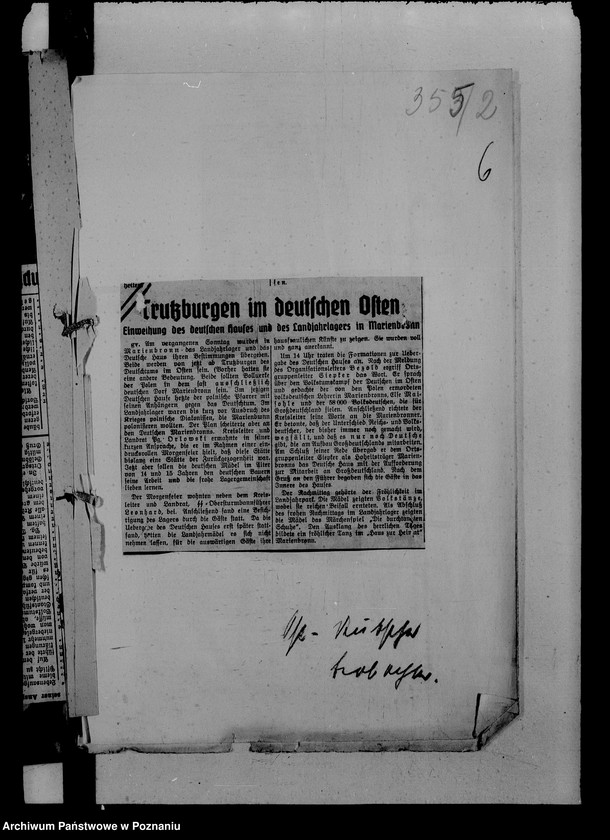 355/2
6
Trutzburgen im deutschen Osten
Einweihung des deutschen Hauses und des Landjahrlagers in Marienbronn
gr. Am vergangenen Sonntag wurden in
Marienbronn das Landjahrlager und das
Deutsche Haus ihren Bestimmungen übergeben.
Beide werden von jetzt ab Trutzburgen des
Deutschtums im Osten sein. Vorher hatten sie
eine andere Bedeutung. Beide sollten Bollwerke
der Polen in dem fast ausschließlich
deutschen Dorf Marienbronn sein. Im jetzigen
Deutschen Hause hetzte der polnische Pfarrer mit
seinen Anhängern gegen das Deutschtum. Im
Landjahrlager waren bis kurz vor Ausbruch des
Krieges polnische Diakonissen, die Marienbronn
polonisieren wollten. Der Plan scheiterte aber an
den Bauern Marienbronns. Kreisleiter und
Landrat Pg. Orlowski ermahnte in seiner
kurzen Ansprache, die er im Rahmen einer ein-
drucksvollen Morgenfeier hielt, daß diese Stätte
bislang eine Stätte der Zurückgezogenheit war.
Jetzt aber sollen die deutschen Mädel im Alter
von 14 und 15 Jahren den deutschen Bauern
seine Arbeit und die frohe Lagergemeinschaft
lieben lernen.
Der Morgenfeier wohnten neben dem Kreis-
leiter und Landrat, SS-Obersturmbannführer
Leonhard, bei. Anschließend fand eine Besich-
tigung des Lagers durch die Gäste statt. Da die
Uebergabe des Deutschen Hauses erst später statt-
fand, hatten die Landjahrmädel es sich nicht
nehmen lassen, für die auswärtigen Gäste ihre
hausfraulichen Künste zu zeigen. Sie wurden voll
und ganz anerkannt.
Um 14 Uhr traten die Formationen zur Ueber-
gabe des Deutschen Hauses an. Nach der Meldung
des Organisationsleiters Bezold ergriff Orts-
gruppenleiter Giepfer das Wort. Er sprach
über den Volkstumskampf der Deutschen im Osten
und gedachte der von den Polen ermordeten
volksdeutschen Lehrerin Marienbronns, Else
und der 58 000 Volksdeutschen, die für
Großdeutschland fielen. Anschließend richtete der
Kreisleiter seine Worte an die Marienbronner.
Er betonte, daß der Unterschied Reichs- und Volks-
deutscher, der bisher immer noch gemacht wird,
wegfällt, und daß es nur noch Deutsche
gibt, die am Aufbau Großdeutschlands mitarbeiten.
Am Schluß seiner Rede übergab er dem Orts-
gruppenleiter Giepfer als Hoheitsträger Marien-
bronns das Deutsche Haus mit der Aufforderung
zur Mitarbeit an Großdeutschland. Nach dem
Gruß an den Führer begaben sich die Gäste in das
Innere des Hauses.
Der Nachmittag gehörte der Fröhlichkeit im
Landjahrpark. Die Mädel zeigten Volkstänze,
wobei sie reichen Beifall ernteten. Als Abschluß
des frohen Nachmittags im Landjahrlager zeigten
die Mädel das Märchenspiel „Die durchtanzten
Schuhe“. Den Ausklang des herrlichen Tages
bildete ein fröhlicher Tanz im „Haus zur Heimat“
Marienbronn.
Deutscher
Beobachter.
Archiwum Państwowe w Poznaniu